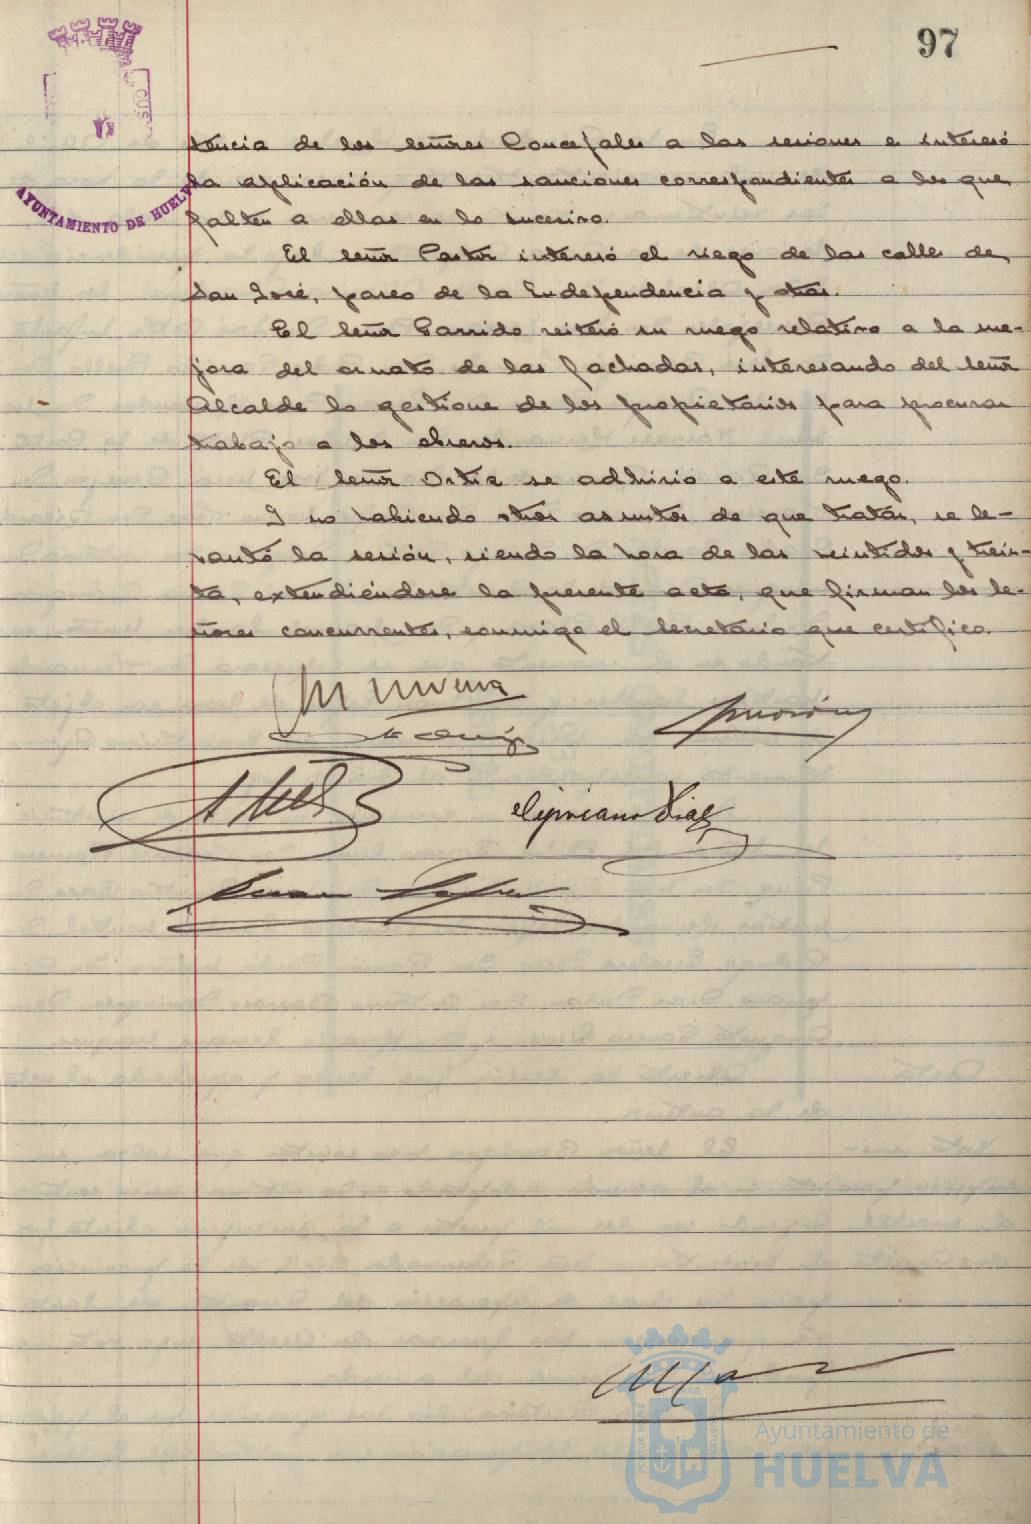 97
AYUNTAMIENTO DE HUELVA
tencia de los señores Concejales a las sesiones e interesó
la aplicación de las sanciones correspondientes a los que
falten a ellas en lo sucesivo.
El señor Pastor interesó el riego de las calles de
San José, paseo de la Independencia y otras.
El señor Garrido reiteró su ruego relativo a la me-
jora del ornato de las fachadas, interesando del señor
Alcalde lo gestione de los propietarios para procurar
trabajo a los obreros.
El señor Ortiz se adhirió a este ruego.
Y no habiendo otros asuntos de que tratar, se le-
vantó la sesión, siendo la hora de las veintidos y trein-
ta, extendiéndose la presente acta, que firman los se-
ñores concurrentes, conmigo el Secretario que certifico.
Cipriano Díaz
Ayuntamiento de
HUELVA